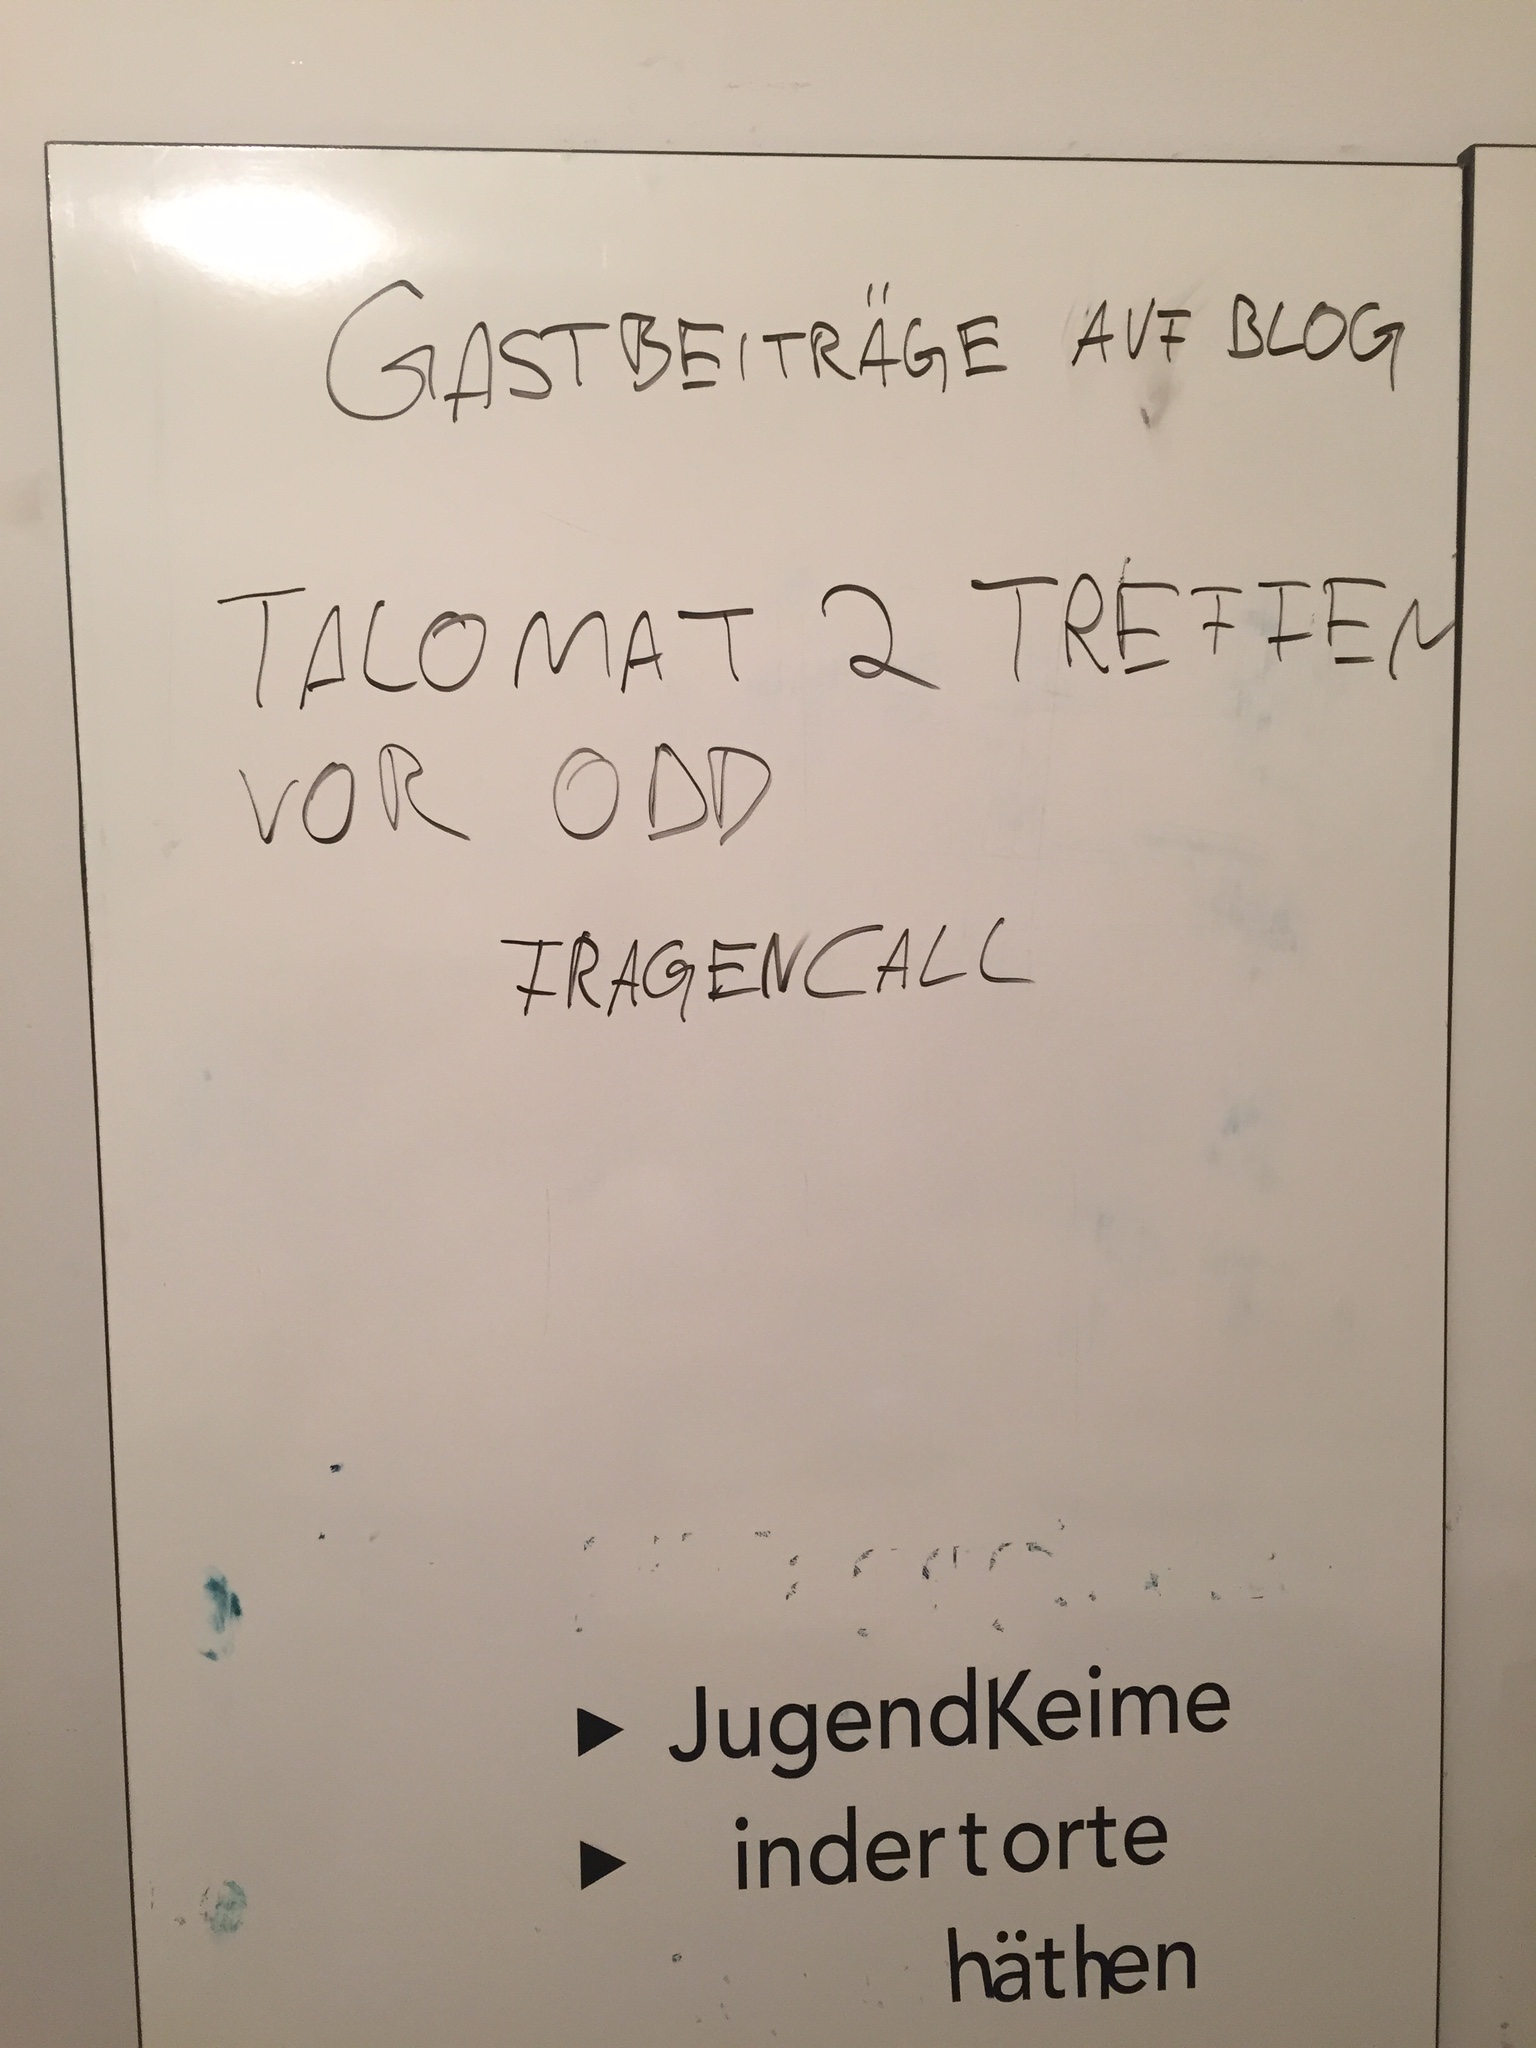 GASTBEITRÄGE AUF BLOG
TALOMAT 2 TREFFEN
VOR ODD
FRAGENCALL
▶ JugendKeime
▶ indertorte
häthen